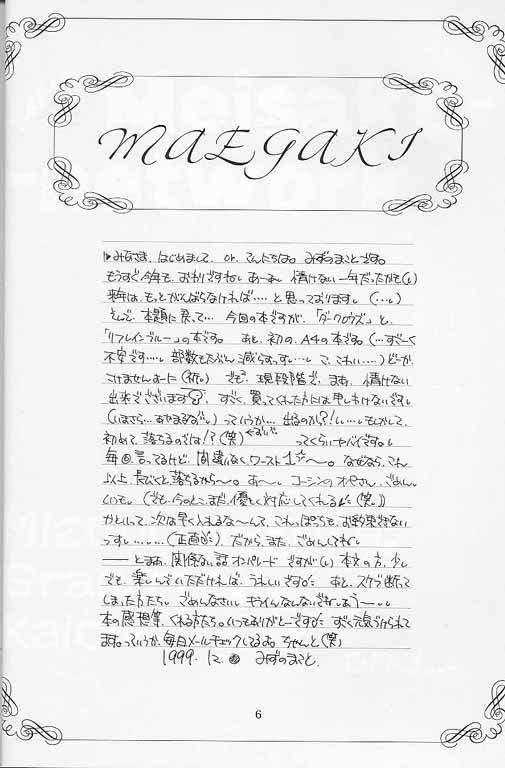 MAEGAKI
みなさま、はじめまして or. こんにちは。みずのまことです。
もうすぐ今年も、おわりですねぃ。あーあ。情けない一年だったかも(し
来年は、もっとがんばらなければ‥‥と思っております。(‥‥し)
そんで、本題に戻って‥‥今回の本ですが、「ダークロウズ」と、
「リフレインブルー」の本です。あと、初の、A4の本です。(‥‥すごーく
不安です‥‥。部数もたぶん減らすっす‥‥。こ、こわい‥‥)どーか、
こけませんよーに(祈)。でも、現段階で、まあ、情けない
出来でございます。すごく、買ってくれた方には申しわけないです。
(いまさら‥あやまるな)。っていうか、出るのか?!‥‥もしかして、
初めて、落ちるのでは!?(笑) ってくらいヤバイです。
毎回言ってるけど、間違いなくワースト1で〜。なぜなら、こん
以上、長びくと落ちるから〜。あー。コーシンのオペさん、ごめん。
いつも。(でも、今のとこ、まだ、優しく対応してくれる(笑))
かといって、次は早く入れるな〜んて、これっぽっちも、お約束できない
っす‥‥‥(正直)。だから、また、ごめんしてね。
――とまあ、関係ない話オンパレードですが(し) 本文の方、少し
でも、楽しんでいただければ、うれしいです。あと、スケブ断って
しまった方たち。ごめんなさい。
本の感想等、くれる方たち。いつもありがとーです。すごく元気づけられて
ます。っていうか、毎日メールチェックしてるよ。ちゃんと(笑)
1999. 12. みずのまこと.
6